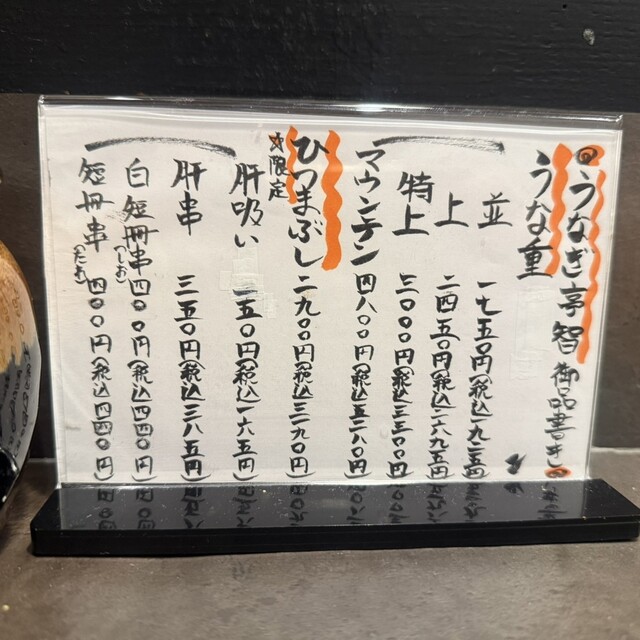 うなぎ亭 智 御品書き
うな重
並 一七五〇円(税込一九二五円)
上 二四五〇円(税込二六九五円)
特上 三〇〇〇円(税込三三〇〇円)
マウンテン 四八〇〇円(税込五二八〇円)
ひつまぶし 二九〇〇円(税込三一九〇円)
限定
肝吸い 一五〇円(税込一六五円)
肝串 三五〇円(税込三八五円)
白短冊串(しお) 四〇〇円(税込四四〇円)
短冊串(たれ) 四〇〇円(税込四四〇円)